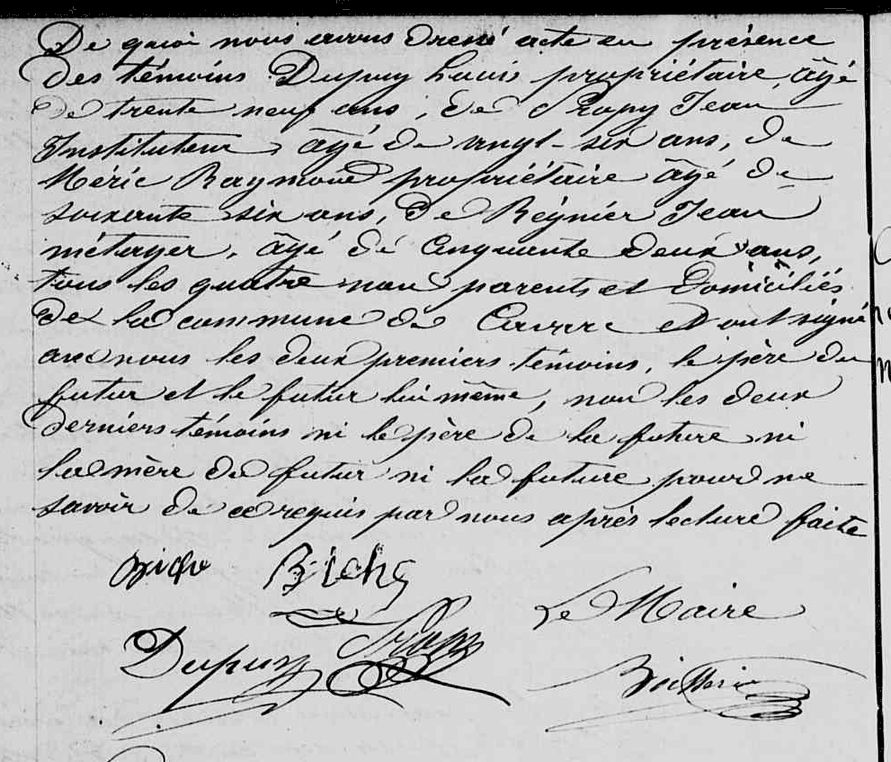 De quoi nous avons dressé acte en présence
des témoins Dupuy Louis propriétaire, âgé
de trente neuf ans, de Jean
Instituteur, âgé de vingt-six ans, de
Méric Raymond propriétaire âgé de
soixante six ans, De Reynier Jean
métayer, âgé de cinquante deux ans,
tous les quatre non parents et domiciliés
de la commune de et ont signé
avec nous les deux premiers témoins, le père du
futur et le futur lui même, non les deux
derniers témoins ni le père de la future ni
la mère du futur ni la future pour ne
savoir de ce requis par nous après lecture faite
Le Maire
Dupuy